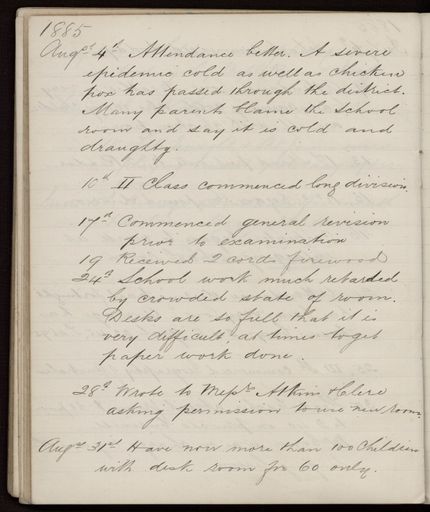 1885
Augst 4th Attendance better. A severe
epidemic cold as well as chicken
pox has passed through the district.
Many parents blame the School
room and say it is cold and
draughty.
10th II Class commenced long division.
17th Commenced general revision
prior to examination
19 Received 2 cords firewood
24th School work much retarded
by crowded state of room.
Desks are so full that it is
very difficult at times to get
paper work done.
28th Wrote to Messrs Atkin & Clere
asking permission to use new room.
Augst 31st Have now more than 100 Children
with desk room for 60 only.